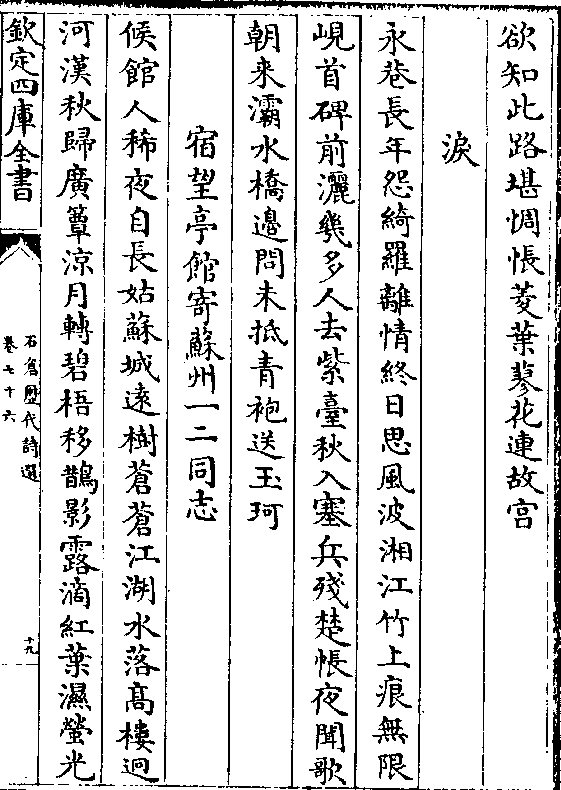 欲知此路堪惆悵菱葉蓼花連故宫
淚
永巷長年怨綺羅離情終日思風波湘江竹上痕無限
峴首碑前灑幾多人去紫臺秋入塞兵殘楚帳夜聞歌
朝來灞水橋邉問未抵青袍送玉珂
宿望亭館寄蘇州一二同志
候館人稀夜自長姑蘇城逺樹蒼蒼江湖水落髙樓迥
河漢秋歸廣簟凉月轉碧梧移鵲影露滴紅葉濕螢光
欽定四庫全書
石倉歴代詩選
卷七十六
十九